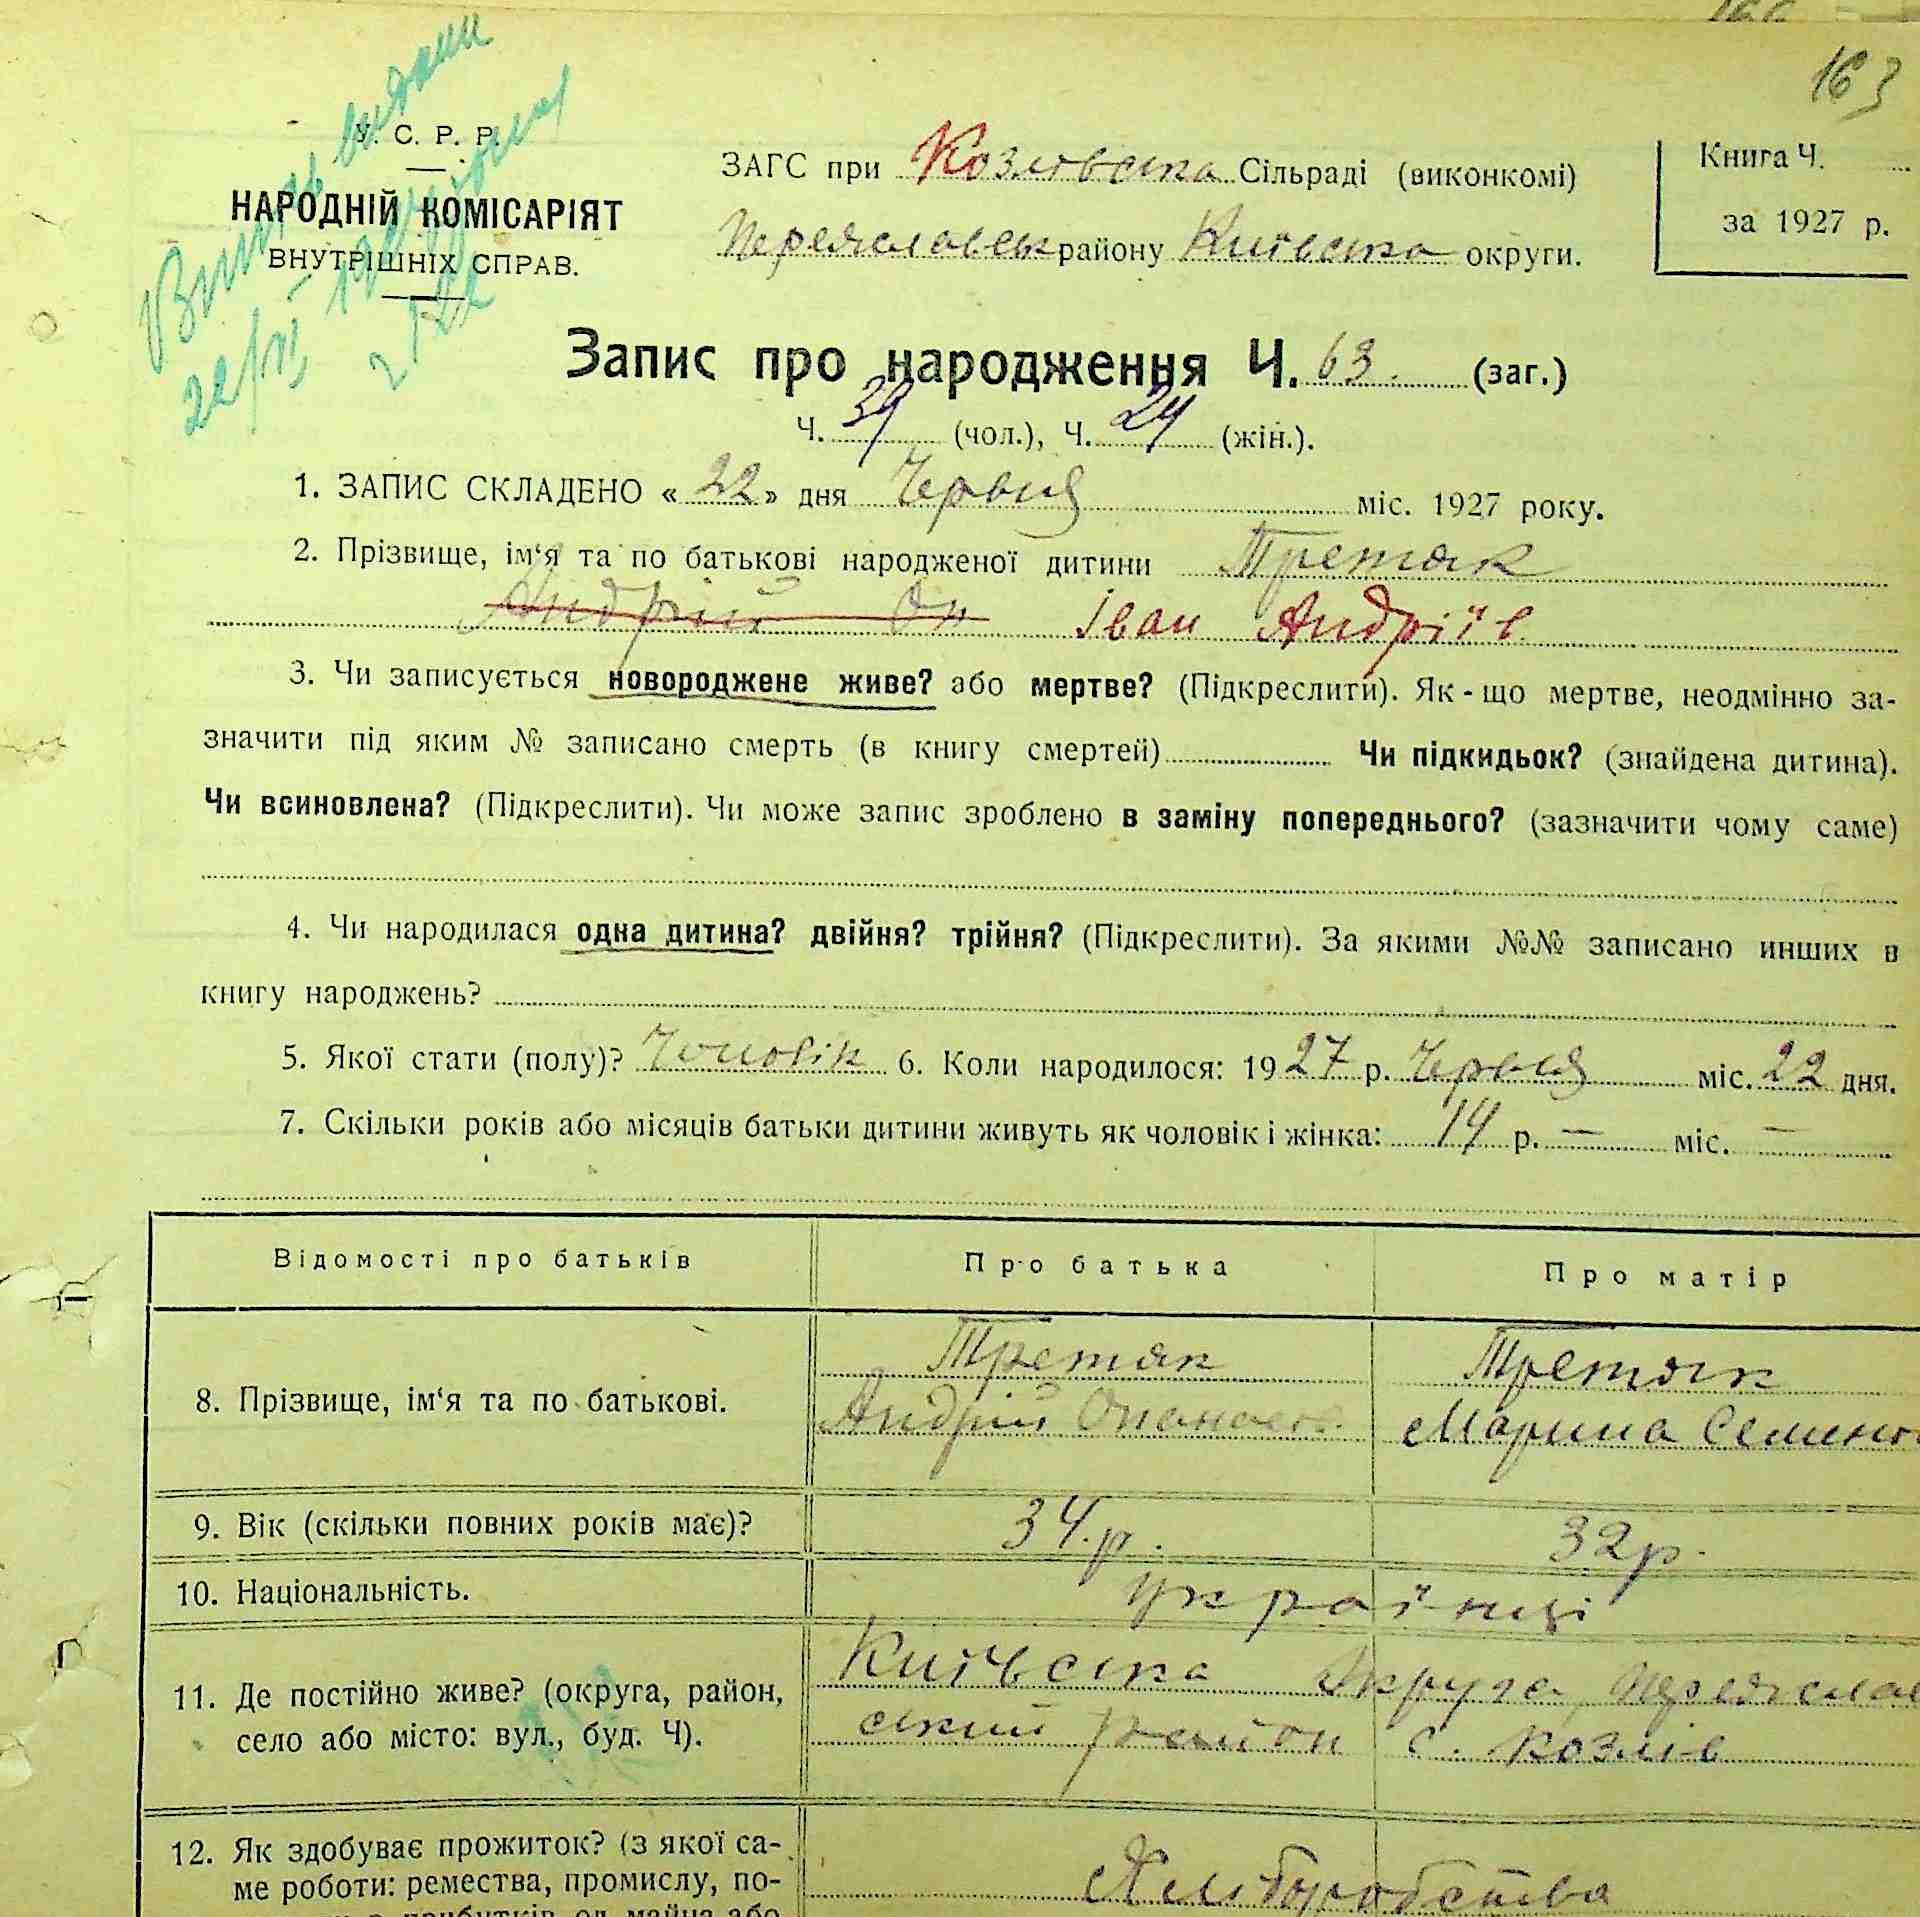 163
У. С. Р. Р.
НАРОДНІЙ КОМІСАРІЯТ
ВНУТРІШНІХ СПРАВ.
ЗАГС при Козлівська Сільраді (виконкомі)
Переяславськ району Київська округи.
Книга Ч.
за 1927 р.
Запис про народження Ч. 63. (заг.)
Ч. 39 (чол.), Ч. 24 (жін.).
1. ЗАПИС СКЛАДЕНО « 22 » дня Червня міс. 1927 року.
2. Прізвище, ім‘я та по батькові народженої дитини Третяк
Андрій Оп Іван Андріїв
3. Чи записується новороджене живе? або мертве? (Підкреслити). Як-що мертве, неодмінно за-
значити під яким № записано смерть (в книгу смертей) Чи підкидьок? (знайдена дитина).
Чи всиновлена? (Підкреслити). Чи може запис зроблено в заміну попереднього? (зазначити чому саме)
4. Чи народилася одна дитина? двійня? трійня? (Підкреслити). За якими №№ записано инших в
книгу народжень?
5. Якої стати (полу)? Чоловік 6. Коли народилося: 1927 р. Червня міс. 22 дня.
7. Скільки років або місяців батьки дитини живуть як чоловік і жінка: 14 р. — міс. —
Відомості про батьків Про батька Про матір
Третяк Третяк
8. Прізвище, ім‘я та по батькові. Андрій Опанасов. Марина Семенов
9. Вік (скільки повних років має)? 34.р. 32р.
10. Національність. українці
11. Де постійно живе? (округа, район, Київська Округа, Переяслав
село або місто: вул., буд. Ч). ский район с. Козлів
12. Як здобуває прожиток? (з якої са-
ме роботи: ремества, промислу, по- Хліборобства